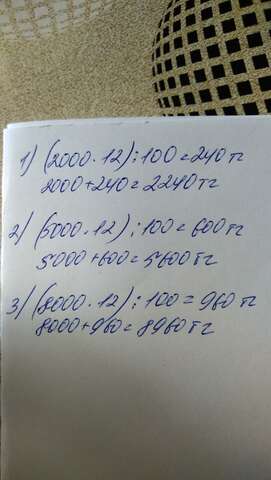 1) (2000 · 12) : 100 = 240 тг
2000 + 240 = 2240 тг
2) (5000 · 12) : 100 = 600 тг
5000 + 600 = 5600 тг
3) (8000 · 12) : 100 = 960 тг
8000 + 960 = 8960 тг